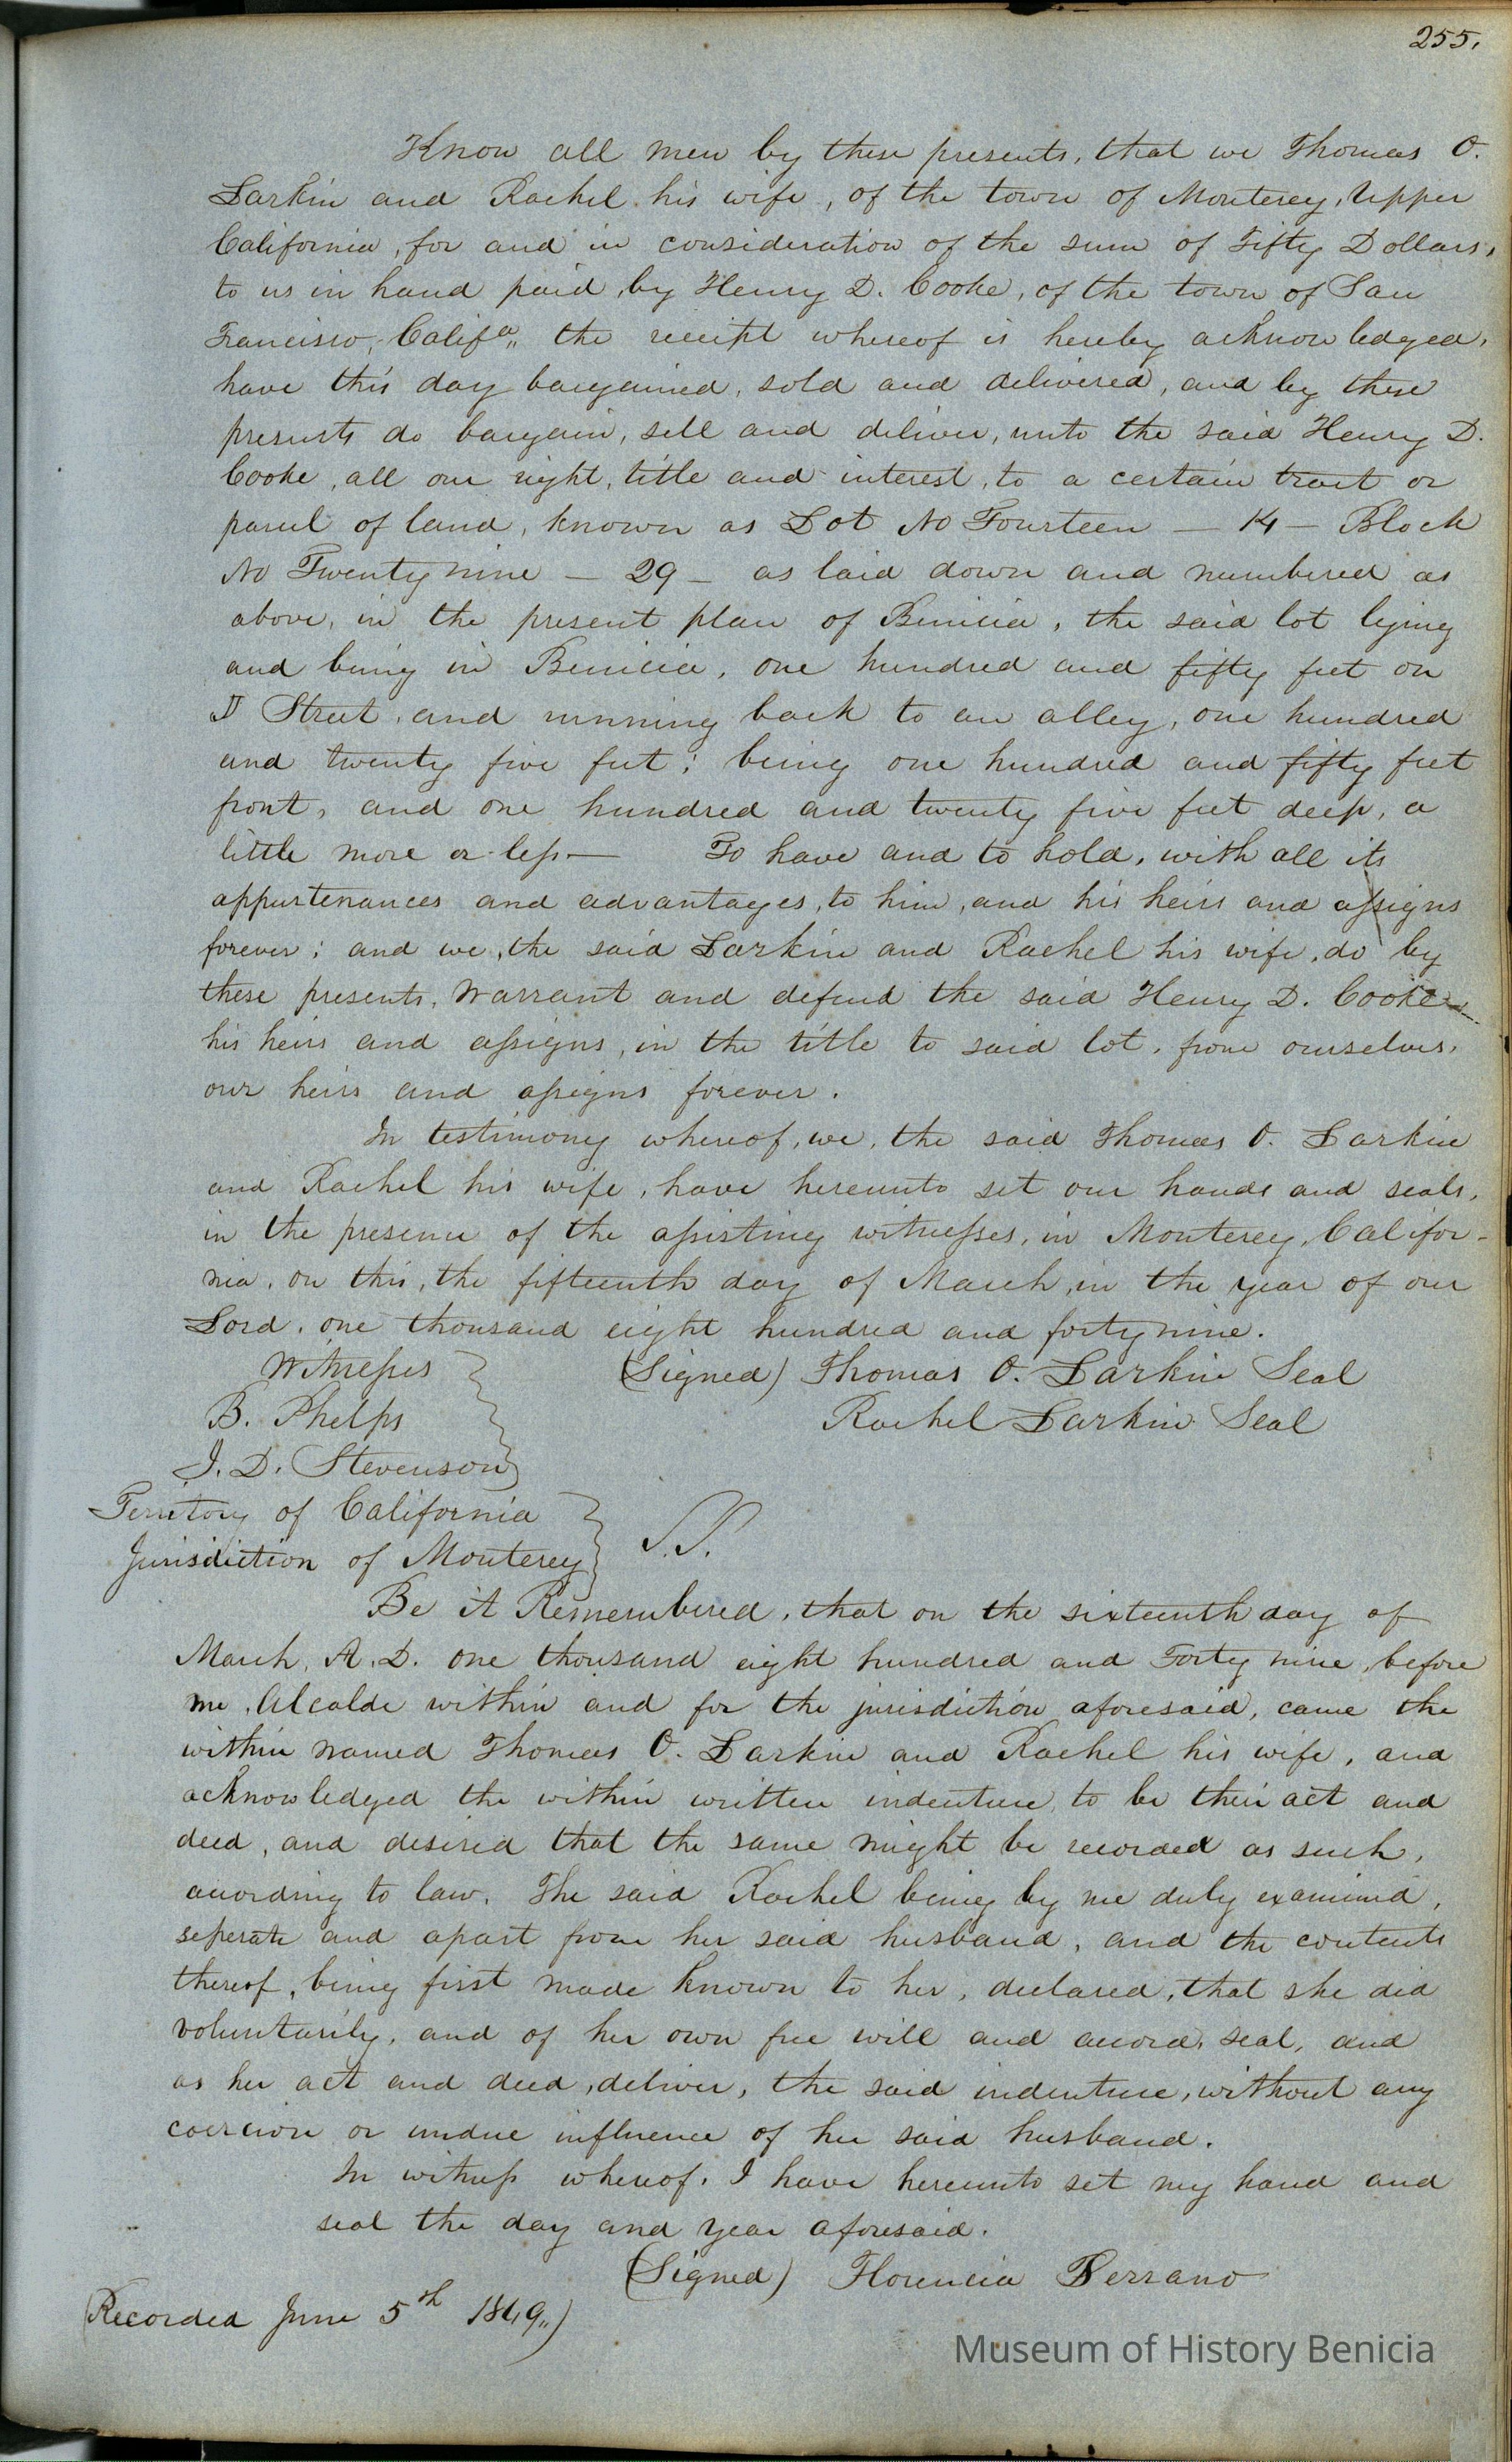 255.
Know all men by these presents, that we Thomas O.
Larkin and Rachel his wife, of the town of Monterey, Upper
California, for and in consideration of the sum of Fifty Dollars,
to us in hand paid, by Henry D. Cooke, of the town of San
Francisco, Califa,, the receipt whereof is hereby acknowledged,
have this day bargained, sold and delivered, and by these
presents do bargain, sell and deliver, unto the said Henry D.
Cooke, all our right, title and interest, to a certain tract or
parcel of land, known as Lot No Fourteen — 14 — Block
No Twenty nine — 29 — as laid down and numbered as
above, in the present plan of Benicia, the said lot lying
and being in Benicia, one hundred and fifty feet on
Street, and running back to an alley, one hundred
and twenty five feet; being one hundred and fifty feet
front, and one hundred and twenty five feet deep, a
little more or less— To have and to hold, with all its
appurtenances and advantages, to him, and his heirs and assigns
forever; and we, the said Larkin and Rachel his wife, do by
these presents, warrant and defend the said Henry D. Cooke
his heirs and assigns, in the title to said lot, from ourselves,
our heirs and assigns forever.
In testimony whereof, we, the said Thomas O. Larkin
and Rachel his wife, have hereunto set our hands and seals,
in the presence of the assisting witnesses, in Monterey, Califor-
nia, on this, the fifteenth day of March, in the year of our
Lord, one thousand eight hundred and forty nine.
Witnesses (Signed) Thomas O. Larkin Seal
B. Phelps Rachel Larkin Seal
J. D. Stevenson
Territory of California
Jurisdiction of Monterey S.S.
Be it Remembered, that on the sixteenth day of
March, A.D. one thousand eight hundred and Forty nine, before
me, Alcalde within and for the jurisdiction aforesaid, came the
within named Thomas O. Larkin and Rachel his wife, and
acknowledged the within written indenture, to be their act and
deed, and desired that the same might be recorded as such,
according to law. The said Rachel being by me duly examined,
seperate and apart from her said husband, and the contents
thereof, being first made known to her, declared, that she did
voluntarily, and of her own free will and accord, seal, and
as her act and deed, deliver, the said indenture, without any
coercion or undue influence of her said husband.
In witness whereof, I have hereunto set my hand and
seal the day and year aforesaid.
(Signed) Florencia Serrano
(Recorded June 5th 1849,,)
Museum of History Benicia